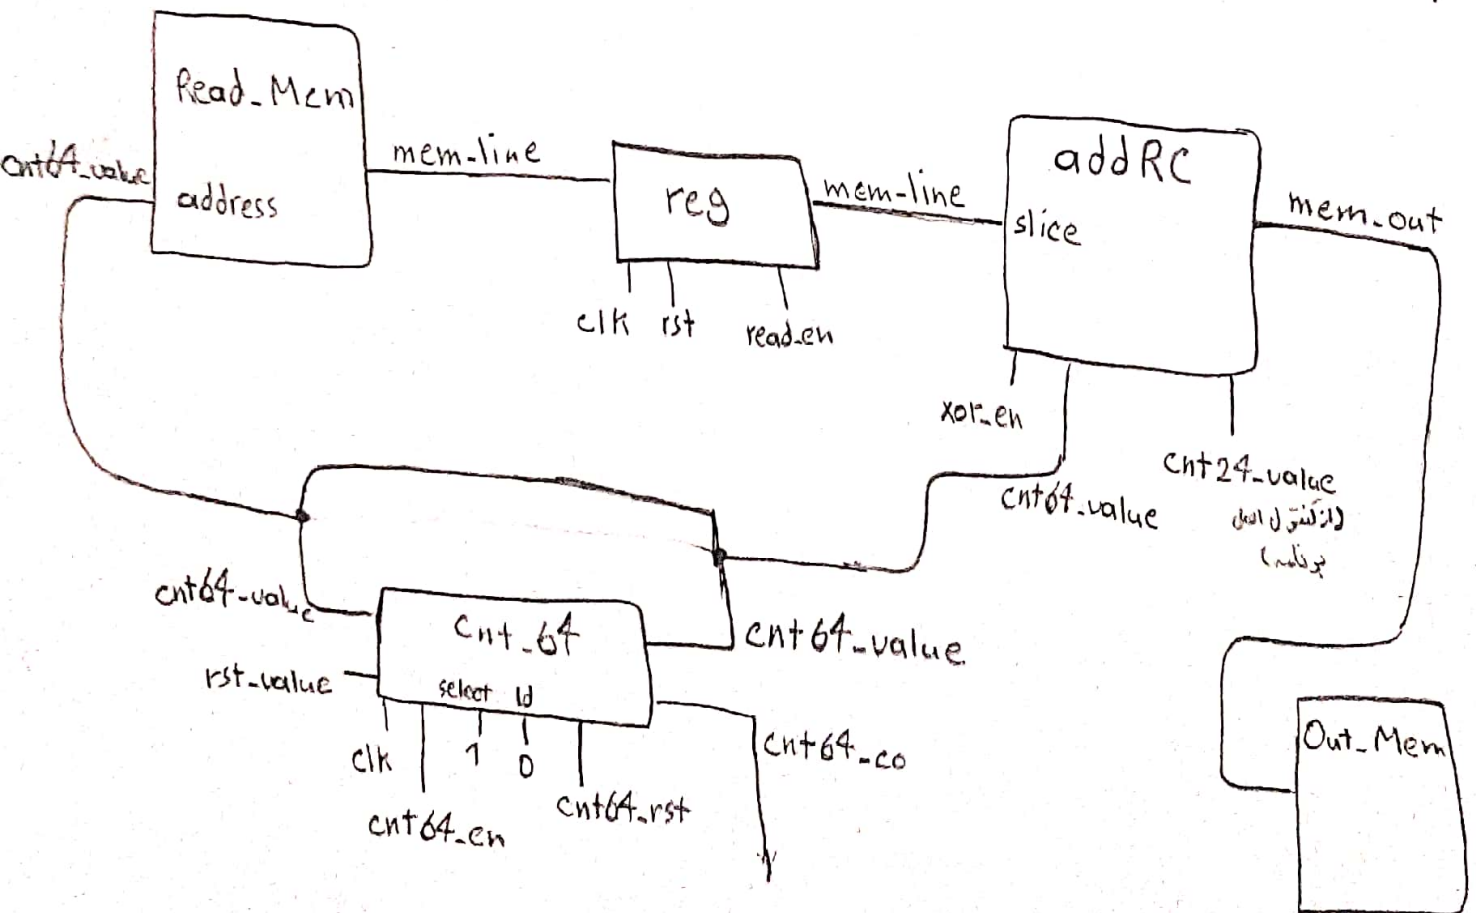 Read_Mem
cnt64_value
address
mem-line
reg
clk
rst
read_en
mem-line
addRC
slice
mem_out
xor_en
cnt64_value
cnt24_value
(از کنترل اصل
برنامه)
cnt64-value
cnt_64
cnt64_value
rst_value
select
ld
clk
1
0
cnt64_en
cnt64_rst
cnt64_co
Out_Mem